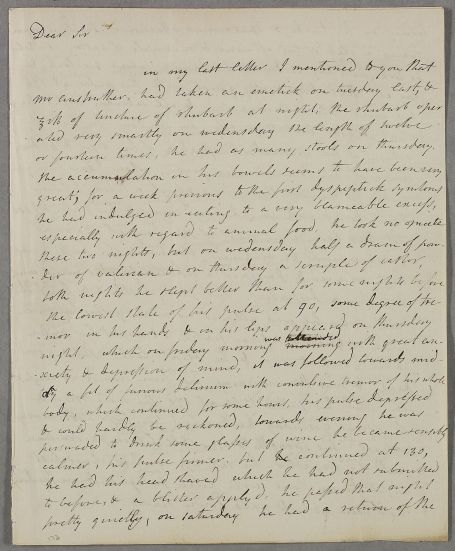 Dear Sir
in my last letter I mentioned to you that
mr anstruther, had taken an emetick on tuesday last, &
of tincture of rhubarb at night, the rhubarb oper
ated very smartly on wednesday the length of twelve
or fourteen times, he had as many stools on thursday.
the accumulation in his bowels seems to have been very
great, for a week previous to the first dyspeptick symtoms
he had indulged in eating to a very blameable excess,
especially with regard to animal food, he took no opiate
these two nights, but on wedensday half a dram of pow
der of valerian & on thursday a scruple of castor,
both nights he slept better than for some nights before
the lowest state of his pulse at 90, some degree of tre
mor in his hands & in his lips appeard on thursday
night, which on friday morning was with great an
xiety & depression of mind, it was followed towards mid
dy a fit of furious delirium with convulsive tremor of his whole
body, which continued for some hours, his pulse depressed
& could hardly be reckoned, towards evening he was
perswaded to drink some glasses of wine he became sensibly
calmer, his pulse firmer, but continued at 130,
he had his head shaved which he had not submitted
to before, & a blister apply'd, he passed that night
pretty quietly, on saturday he had a return of the